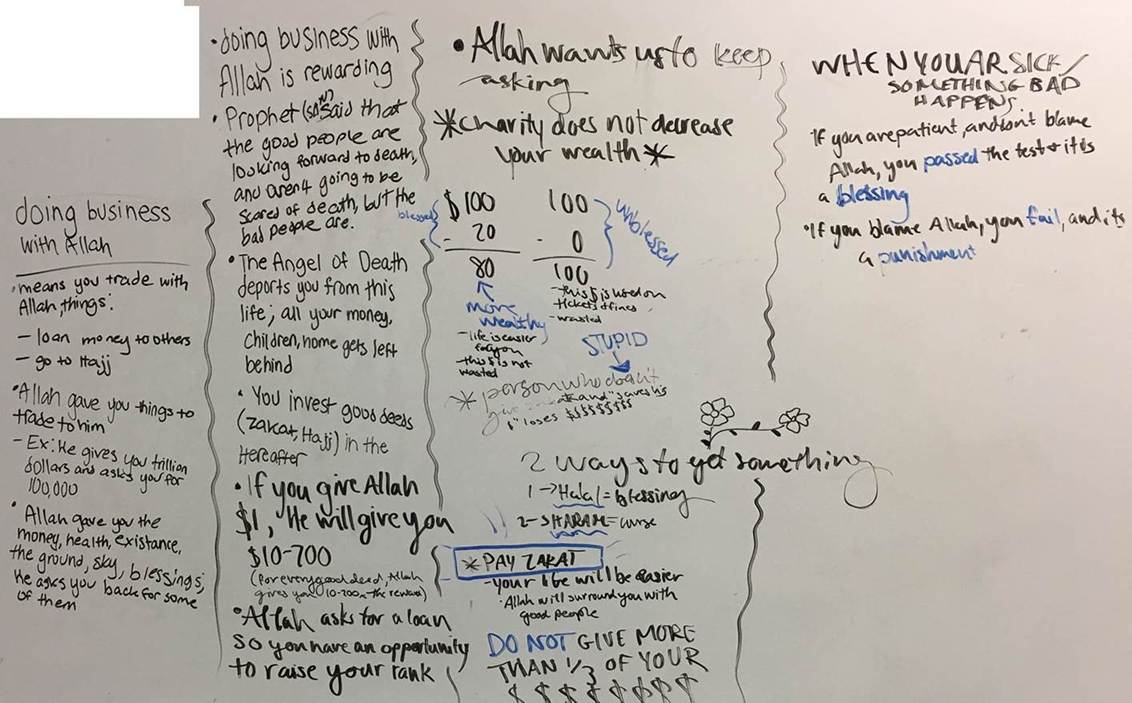 doing business
with Allah
• means you trade with
Allah, things:
- loan money to others
- go to Hajj
• Allah gave you things to
trade to him
- Ex: He gives you trillion
dollars and asks you for
100,000
• Allah gave you the
money, health, existance,
the ground, sky, blessings;
He asks you back for some
of them
• doing business with
Allah is rewarding
• Prophet (SAW) said that
the good people are
looking forward to death,
and aren't going to be
scared of death, but the
bad people are.
• The Angel of Death
deports you from this
life; all your money,
children, home gets left
behind
• You invest good deeds
(zakat, Hajj) in the
Hereafter
• If you give Allah
$1, He will give you
$10-700
(for every good deed, Allah
gives you 10-700x the reward)
• Allah asks for a loan
so you have an opportunity
to raise your rank
• Allah wants us to keep
asking
*charity does not decrease
your wealth*
blessed
$100
- 20
80
more
wealthy
- life is easier
for you
- this $ is not
wasted
100
- 0
100
unblessed
- this $ is used on
tickets & fines
- wasted
STUPID
* person who doesn't
give and "saves his
$" loses $$$$$$$$$
2 ways to get something
1 → Halal = blessing
2 - SHARAM = curse
*PAY ZAKAT
- your life will be easier
• Allah will surround you with
good people
DO NOT GIVE MORE
THAN 1/3 OF YOUR
$ $ $ $ $ $ $ $
WHEN YOU AR SICK/
SOMETHING BAD
HAPPENS:
If you are patient, and don't blame
Allah, you passed the test & it is
a blessing
• If you blame Allah, you fail, and its
a punishment